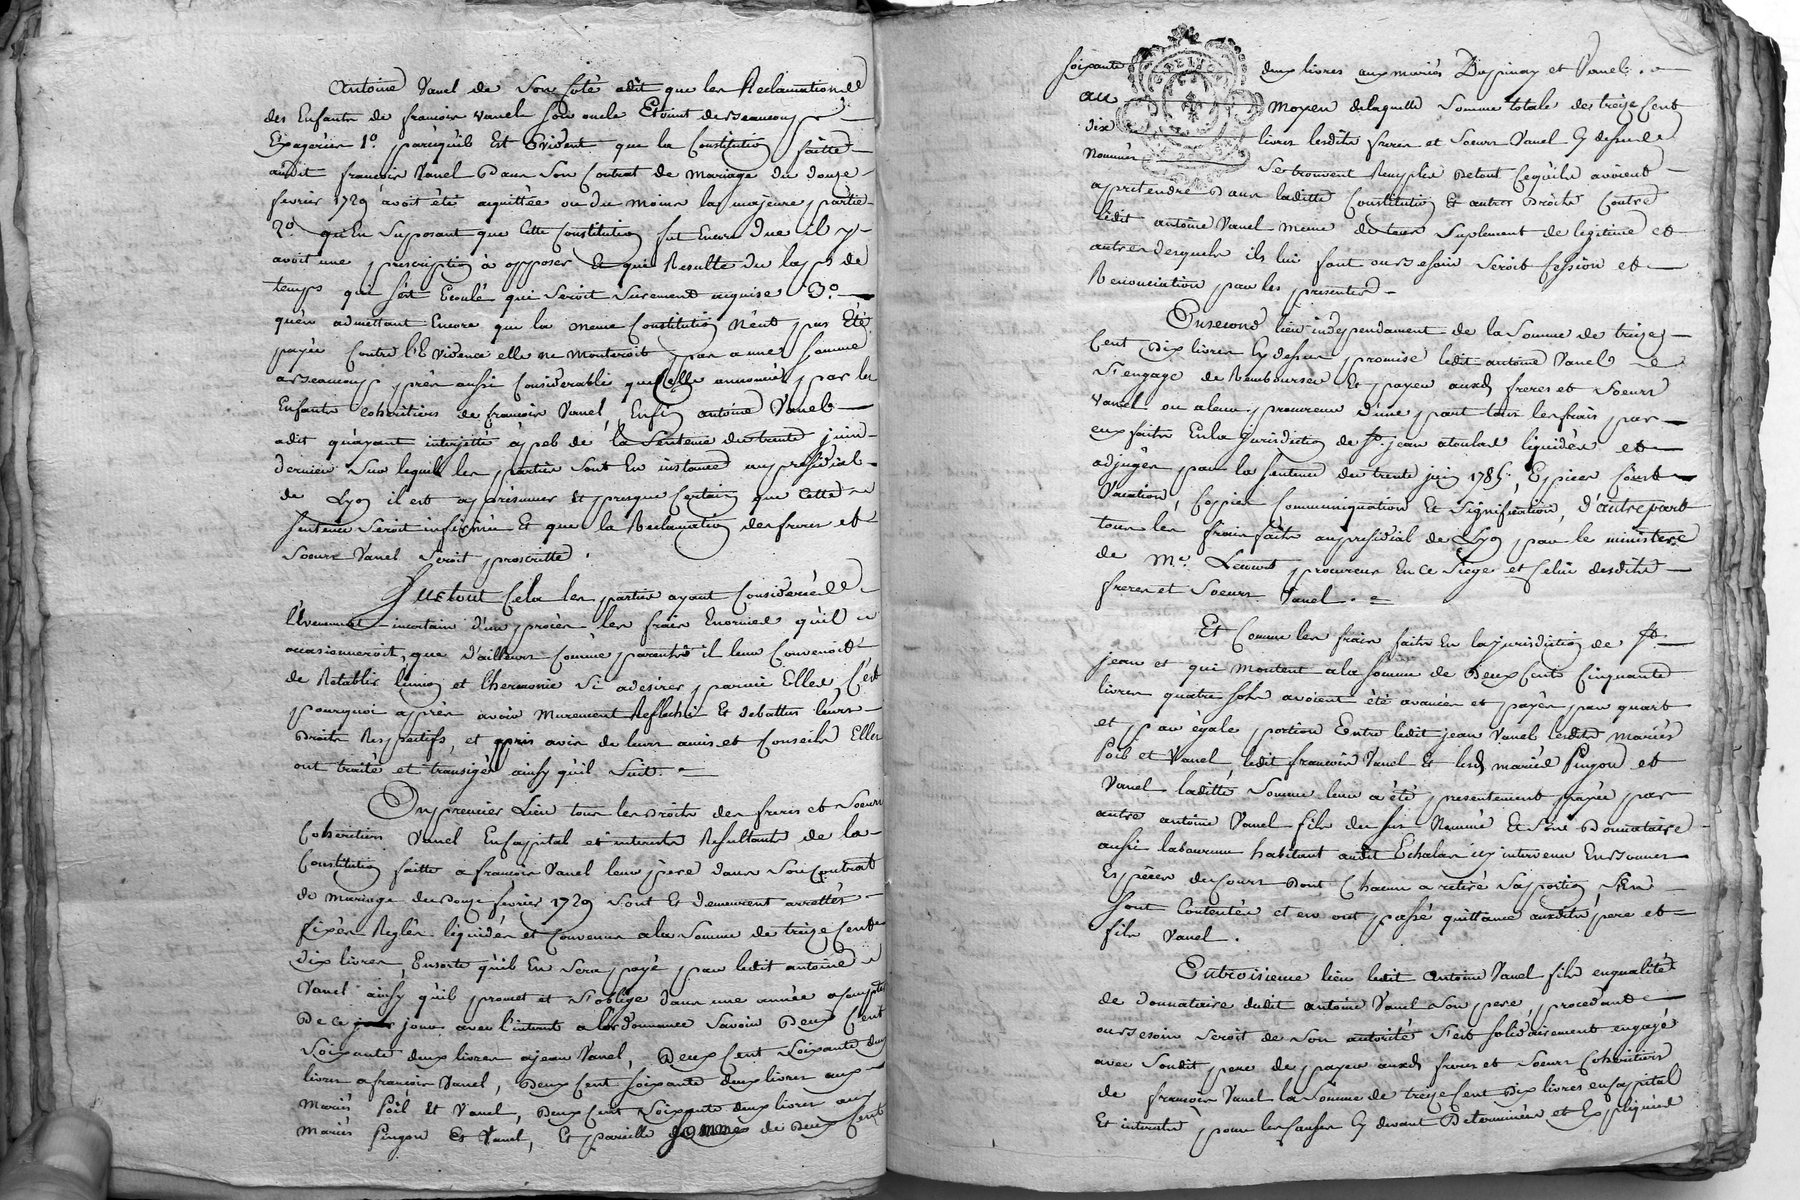 Antoine Vanel de Son Coté adit que les Reclamations
des Enfants de francois vanel son oncle Etoint de beaucoup
Exagerées 1º. parcequ'il Est Evident que la Constitution faitte
audit francois Vanel Dans Son Contrat de Mariage du douze
fevrier 1729 avoit été aquittée ou du moins la majeure partie
2º. qu'En Supposant que Cette Constitution fut Encore Due il y
avoit une prescription à opposer Et qui Resulte du laps de
temps qui s'est Ecoulé qui Seroit Surement aquise 3º.
qu'en admettant Encore que la meme Constitution N'eut pas Eté
payée Contre l'Evidence elle ne Monteroit pas a une Somme
abeaucoup près aussi Considerable que Celle annoncée par les
Enfants Coheritiers de francois Vanel, Enfin antoine Vanel
adit qu'ayant interjetté appel de la Sentence du trente juin
dernier Sur lequel les parties Sont En instance au presidial
de Lyon il est a présumer Et presque Certain que Cette
Sentence Seroit infirmée Et que la Reclamation des freres et
Soeurs Vanel Seroit proscritte.
Sur tout Cela les parties ayant Considéré
l'Evenement incertain d'un procès les frais Enormes qu'il
occasionneroit, que d'ailleurs Comme parents il leur Convenoit
de Retablir l'union et l'harmonie Si a desirer parmi Elles, C'est
pourquoi après avoir Murement Reflechi Et debattus leurs
Droits Respectifs, et pris avis de leurs amis et Conseils Elles
ont traité et transigé ainsy qu'il Suit.
En premier Lieu tous les Droits des freres et Soeurs
Coheritiers Vanel En Capital et interets Resultants de la
Constitution faitte a francois Vanel leur pere dans Son Contrat
de Mariage du Douze fevrier 1729 Sont Et demeurent arrettés
fixés Reglés liquidés et Convenus a la Somme de treize Cents
dix livres, Ensorte qu'il En Sera payé par ledit antoine
Vanel ainsy qu'il promet et s'oblige dans une année a compter
De ce jour avec l'interet a l'ordonnance Savoir Deux Cent
Soixante deux livres a jean Vanel, Deux Cent Soixante deux
livres a francois Vanel, Deux Cent Soixante deux livres aux
Mariés Poil Et Vanel, Deux Cent Soixante deux livres aux
Mariés Pingon Et Vanel, Et pareille Somme de Deux Cent
Soixante deux livres aux mariés Dupinay et Vanel.
au Moyen de laquelle Somme totale de treize Cent
dix livres lesdits freres et Soeurs Vanel Cy dessus
Nommés Se trouvent Remplis De tout Ce qu'ils avoient
a pretendre Dans laditte Constitution Et autres Droits Contre
ledit antoine Vanel Meme de tous Suplement de legitime et
autres desquels ils lui font ou besoin Seroit Cession et
Renonciation par les presentes.
En Second lieu independament de la Somme de treize
Cent Dix livres Cy dessus promise ledit antoine Vanel
s'engage de Rembourser Et payer auxd. freres et Soeurs
Vanel ou a leur procureur d'une part tous les frais par
eux faits En la jurisdiction de St. jean liquidés et
adjugés par la Sentence du trente juin 1785, Epices Cour
Vacation, Coppies Communiquation Et Signification, d'autre part
tous les frais faits au presidial de Lyon par le ministere
de Me. procureur En ce Siege et Celui desdits
freres et Soeurs Vanel.
Et Comme les frais faits En la jurisdiction de St.
jean et qui Montent a la Somme de Deux Cents Cinquante
livres quatre Sols avoient été avancés et payés par quart
et par égale portion Entre ledit jean Vanel lesdits mariés
Poil et Vanel ledit francois Vanel Et lesd. mariés Pingon et
Vanel laditte Somme leur a été presentement payée par
autre antoine Vanel fils du Sus Nommé Et Son Donnataire
aussi laboureur habitant audit Echalas icy intervenu En bonnes
Espèces du Cours Dont Chacun a retiré Sa portion S'En
Sont Contentés et en ont passé quittance auxdits pere et
fils Vanel.
En troisieme lieu ledit Antoine Vanel fils en qualité
de donnataire dudit antoine Vanel Son pere procedant
ou besoin Seroit de Son autorité s'Est Solidairement engagé
avec Sondit pere de payer auxd. freres et Soeurs Coheritiers
de francois Vanel la Somme de treize Cent Dix livres en Capital
Et interets pour les Causes Cy devant Determinées et Expliquées